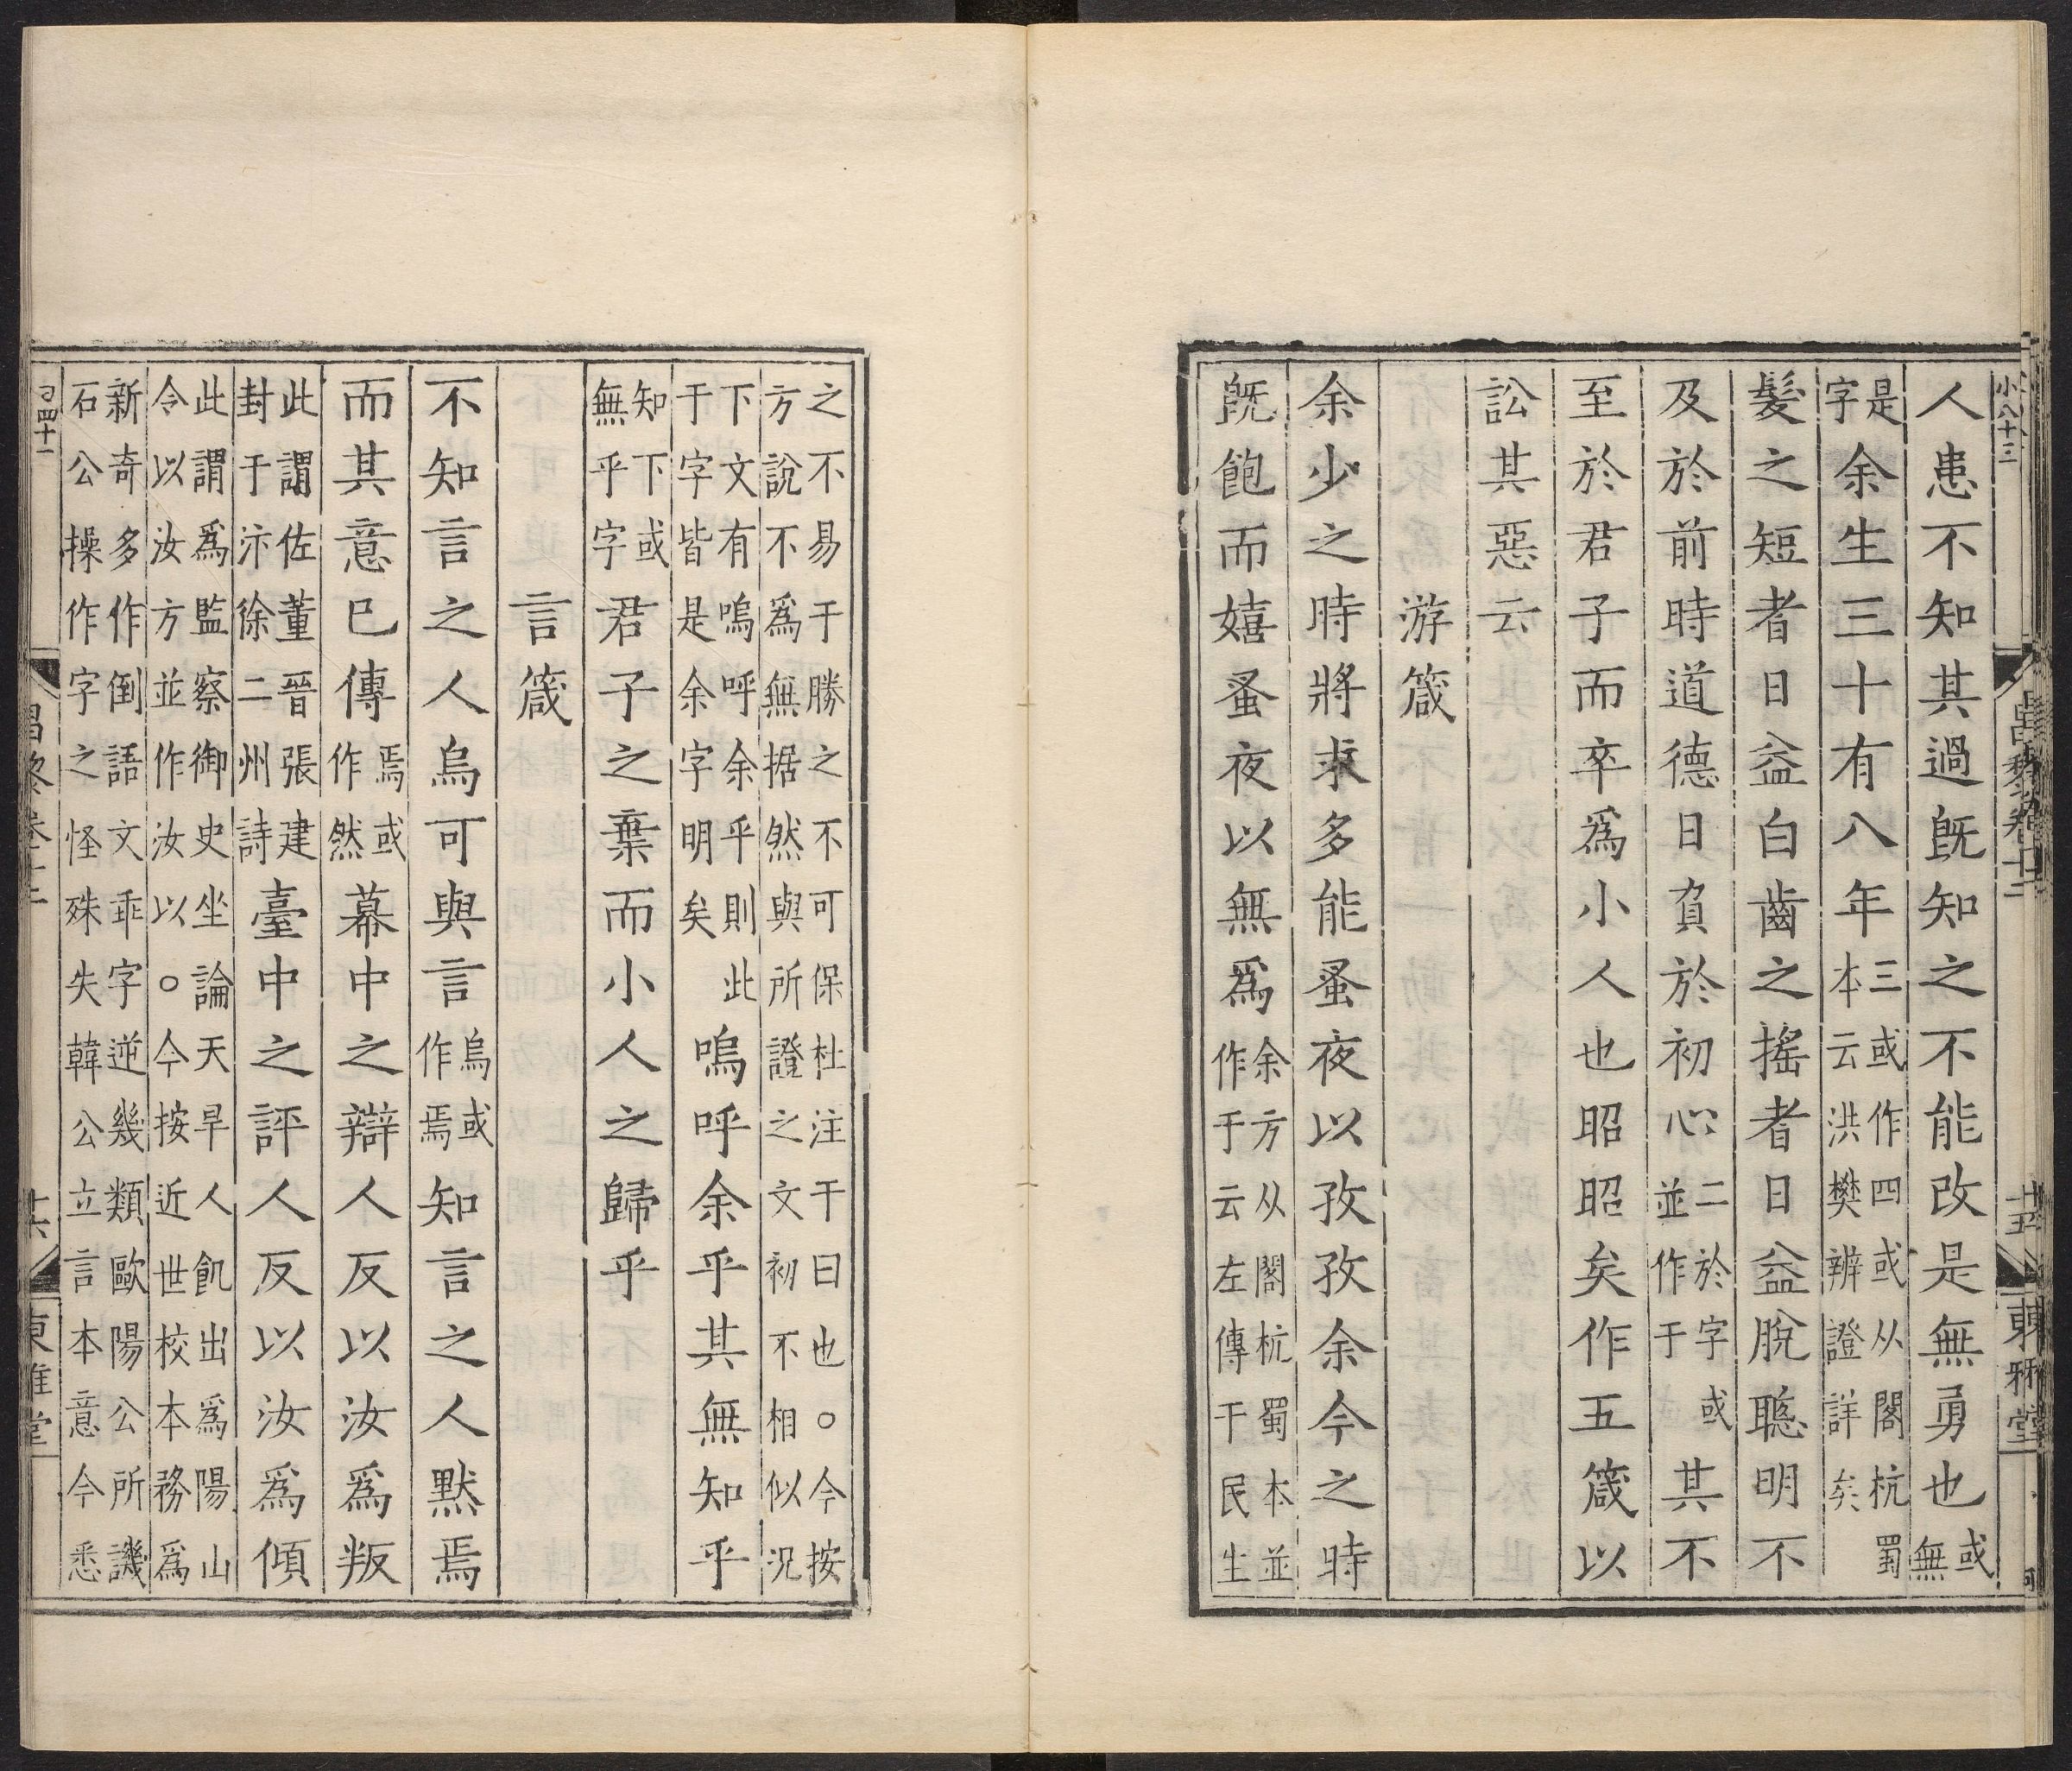 小八十三
昌黎卷十二
十五
東雅堂
人患不知其過旣知之不能改是無勇也或無
是字余生三十有八年三或作四或从閣杭蜀本云洪樊辨證詳矣
髮之短者日益白齒之搖者日益脫聰明不
及於前時道德日負於初心二於字或並作于其不
至於君子而卒爲小人也昭昭矣作五箴以
訟其惡云
游箴
余少之時將求多能蚤夜以孜孜余今之時
旣飽而嬉蚤夜以無爲余方从閣杭蜀本並作于云左傳于民生
之不易于勝之不可保杜注于曰也○今按方說不爲無据然與所證之文初不相似況
下文有嗚呼余乎則此于字皆是余字明矣嗚呼余乎其無知乎
知下或無乎字君子之棄而小人之歸乎
言箴
不知言之人烏可與言烏或作焉知言之人默焉
而其意已傳焉或作然幕中之辯人反以汝爲叛
此謂佐董晉張建封于汴徐二州詩臺中之評人反以汝爲傾
此謂爲監察御史坐論天旱人飢出爲陽山令以汝方並作汝以○今按近世校本務爲
新奇多作倒語文乖字逆幾類歐陽公所譏石公操作字之怪殊失韓公立言本意今悉
四十一
昌黎卷十二
十六
東雅堂